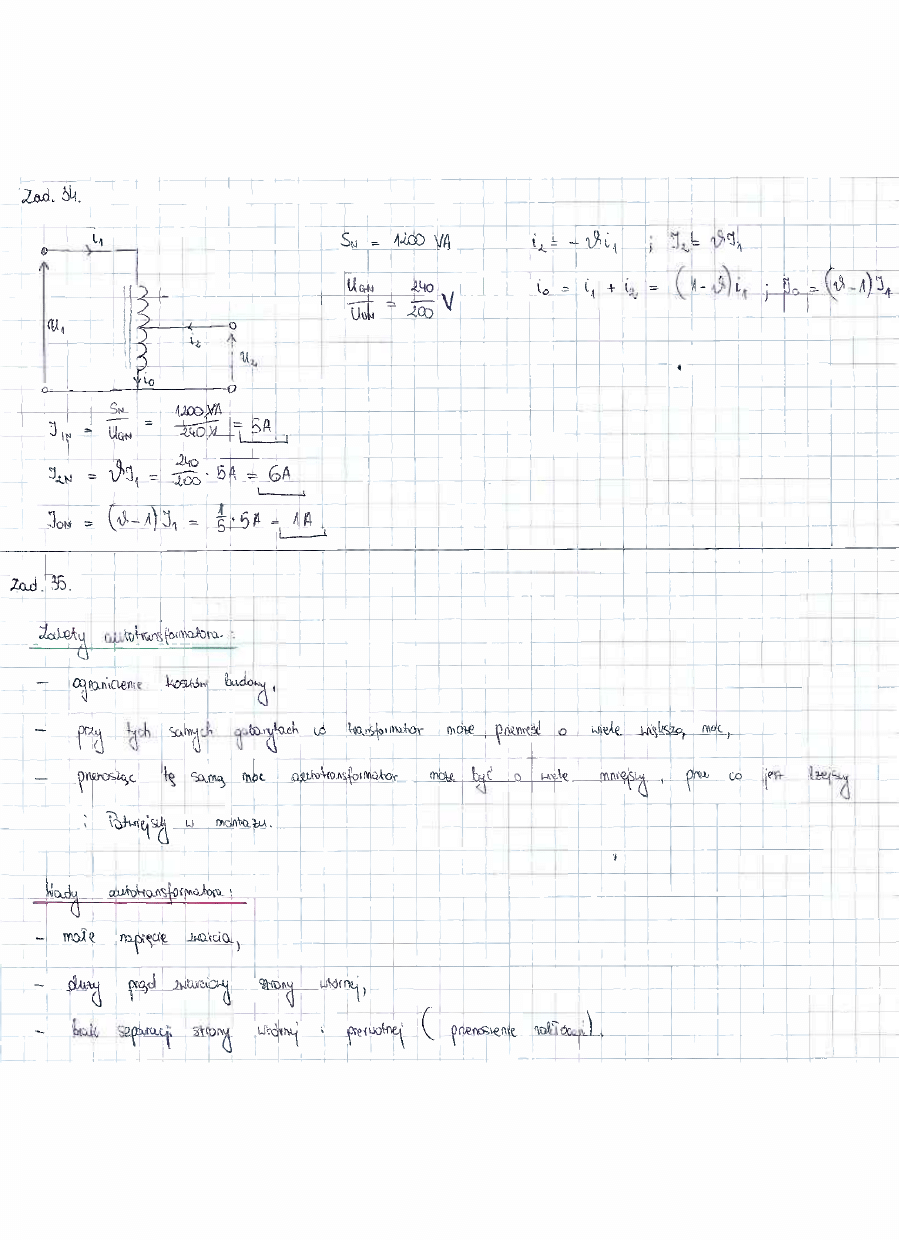 Zad. 34.
i₁
Sₙ = 1200 VA
i₂ = - ϑi₁ ; I₂ = ϑI₁
U_GN / U_DN = 240/200 V
i₀ = i₁ + i₂ = (1-ϑ)i₁ ; I₀ = (ϑ-1)I₁
U₁
i₂
U₂
i₀
I₁N = Sₙ/U_GN = 1200 VA/240 V = 5A
I₂N = ϑI₁ = 240/200 · 5A = 6A
I₀N = (ϑ-1)I₁ = 1/5 · 5A = 1A
Zad. 35.
Zalety autotransformatora:
- ograniczenie kosztów budowy,
- przy tych samych gabarytach co transformator może przenieść o wiele większą moc,
- przenosząc tę samą moc autotransformator może być o wiele mniejszy, przez co jest lżejszy
i łatwiejszy w montażu.
Wady autotransformatora:
- małe napięcie zwarcia,
- duży prąd zwarciowy strony wtórnej,
- brak separacji strony wtórnej i pierwotnej (przenoszenie zakłóceń).